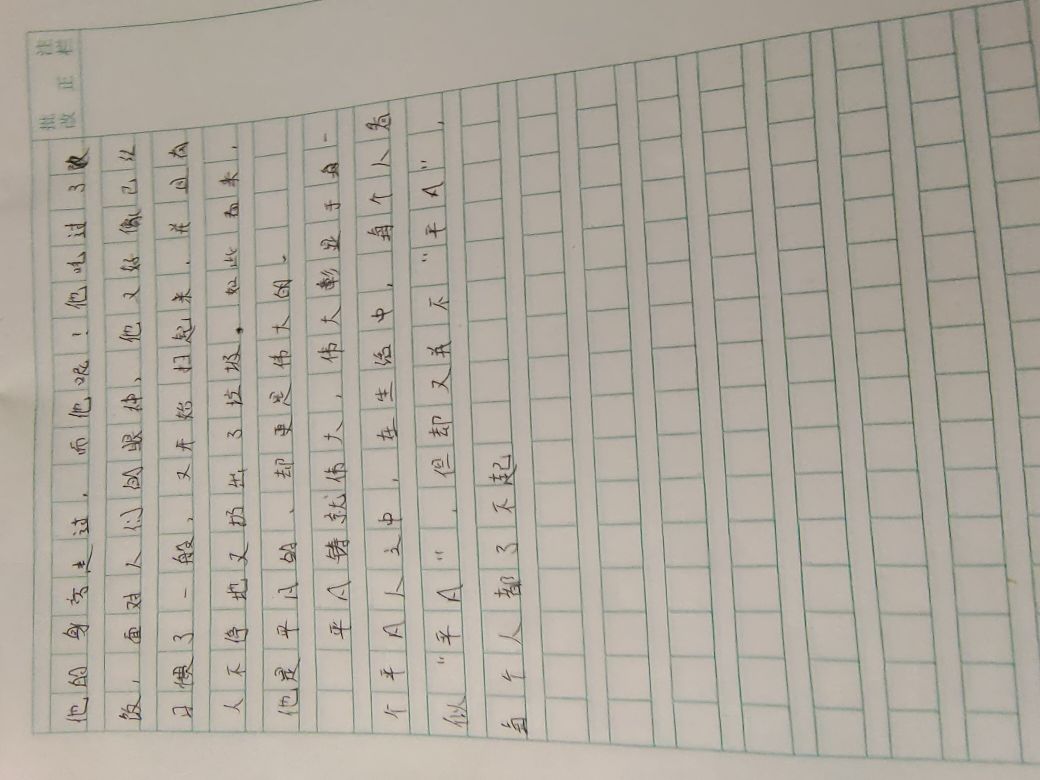 批改
正
注栏
他的身旁走过，而他呢！他吃过了饭
饭，面对人们的眼神，他又好像已经
习惯了一般，又开始扫起来，并且有
人不停地又扔出了垃圾。如此看来，
他是平凡的、却更是伟大的。
平凡铸就伟大，伟大彰显于每一
个平凡人之中，在生活中，每个人看
似“平凡”，但却又并不“平凡”，
每个人都了不起